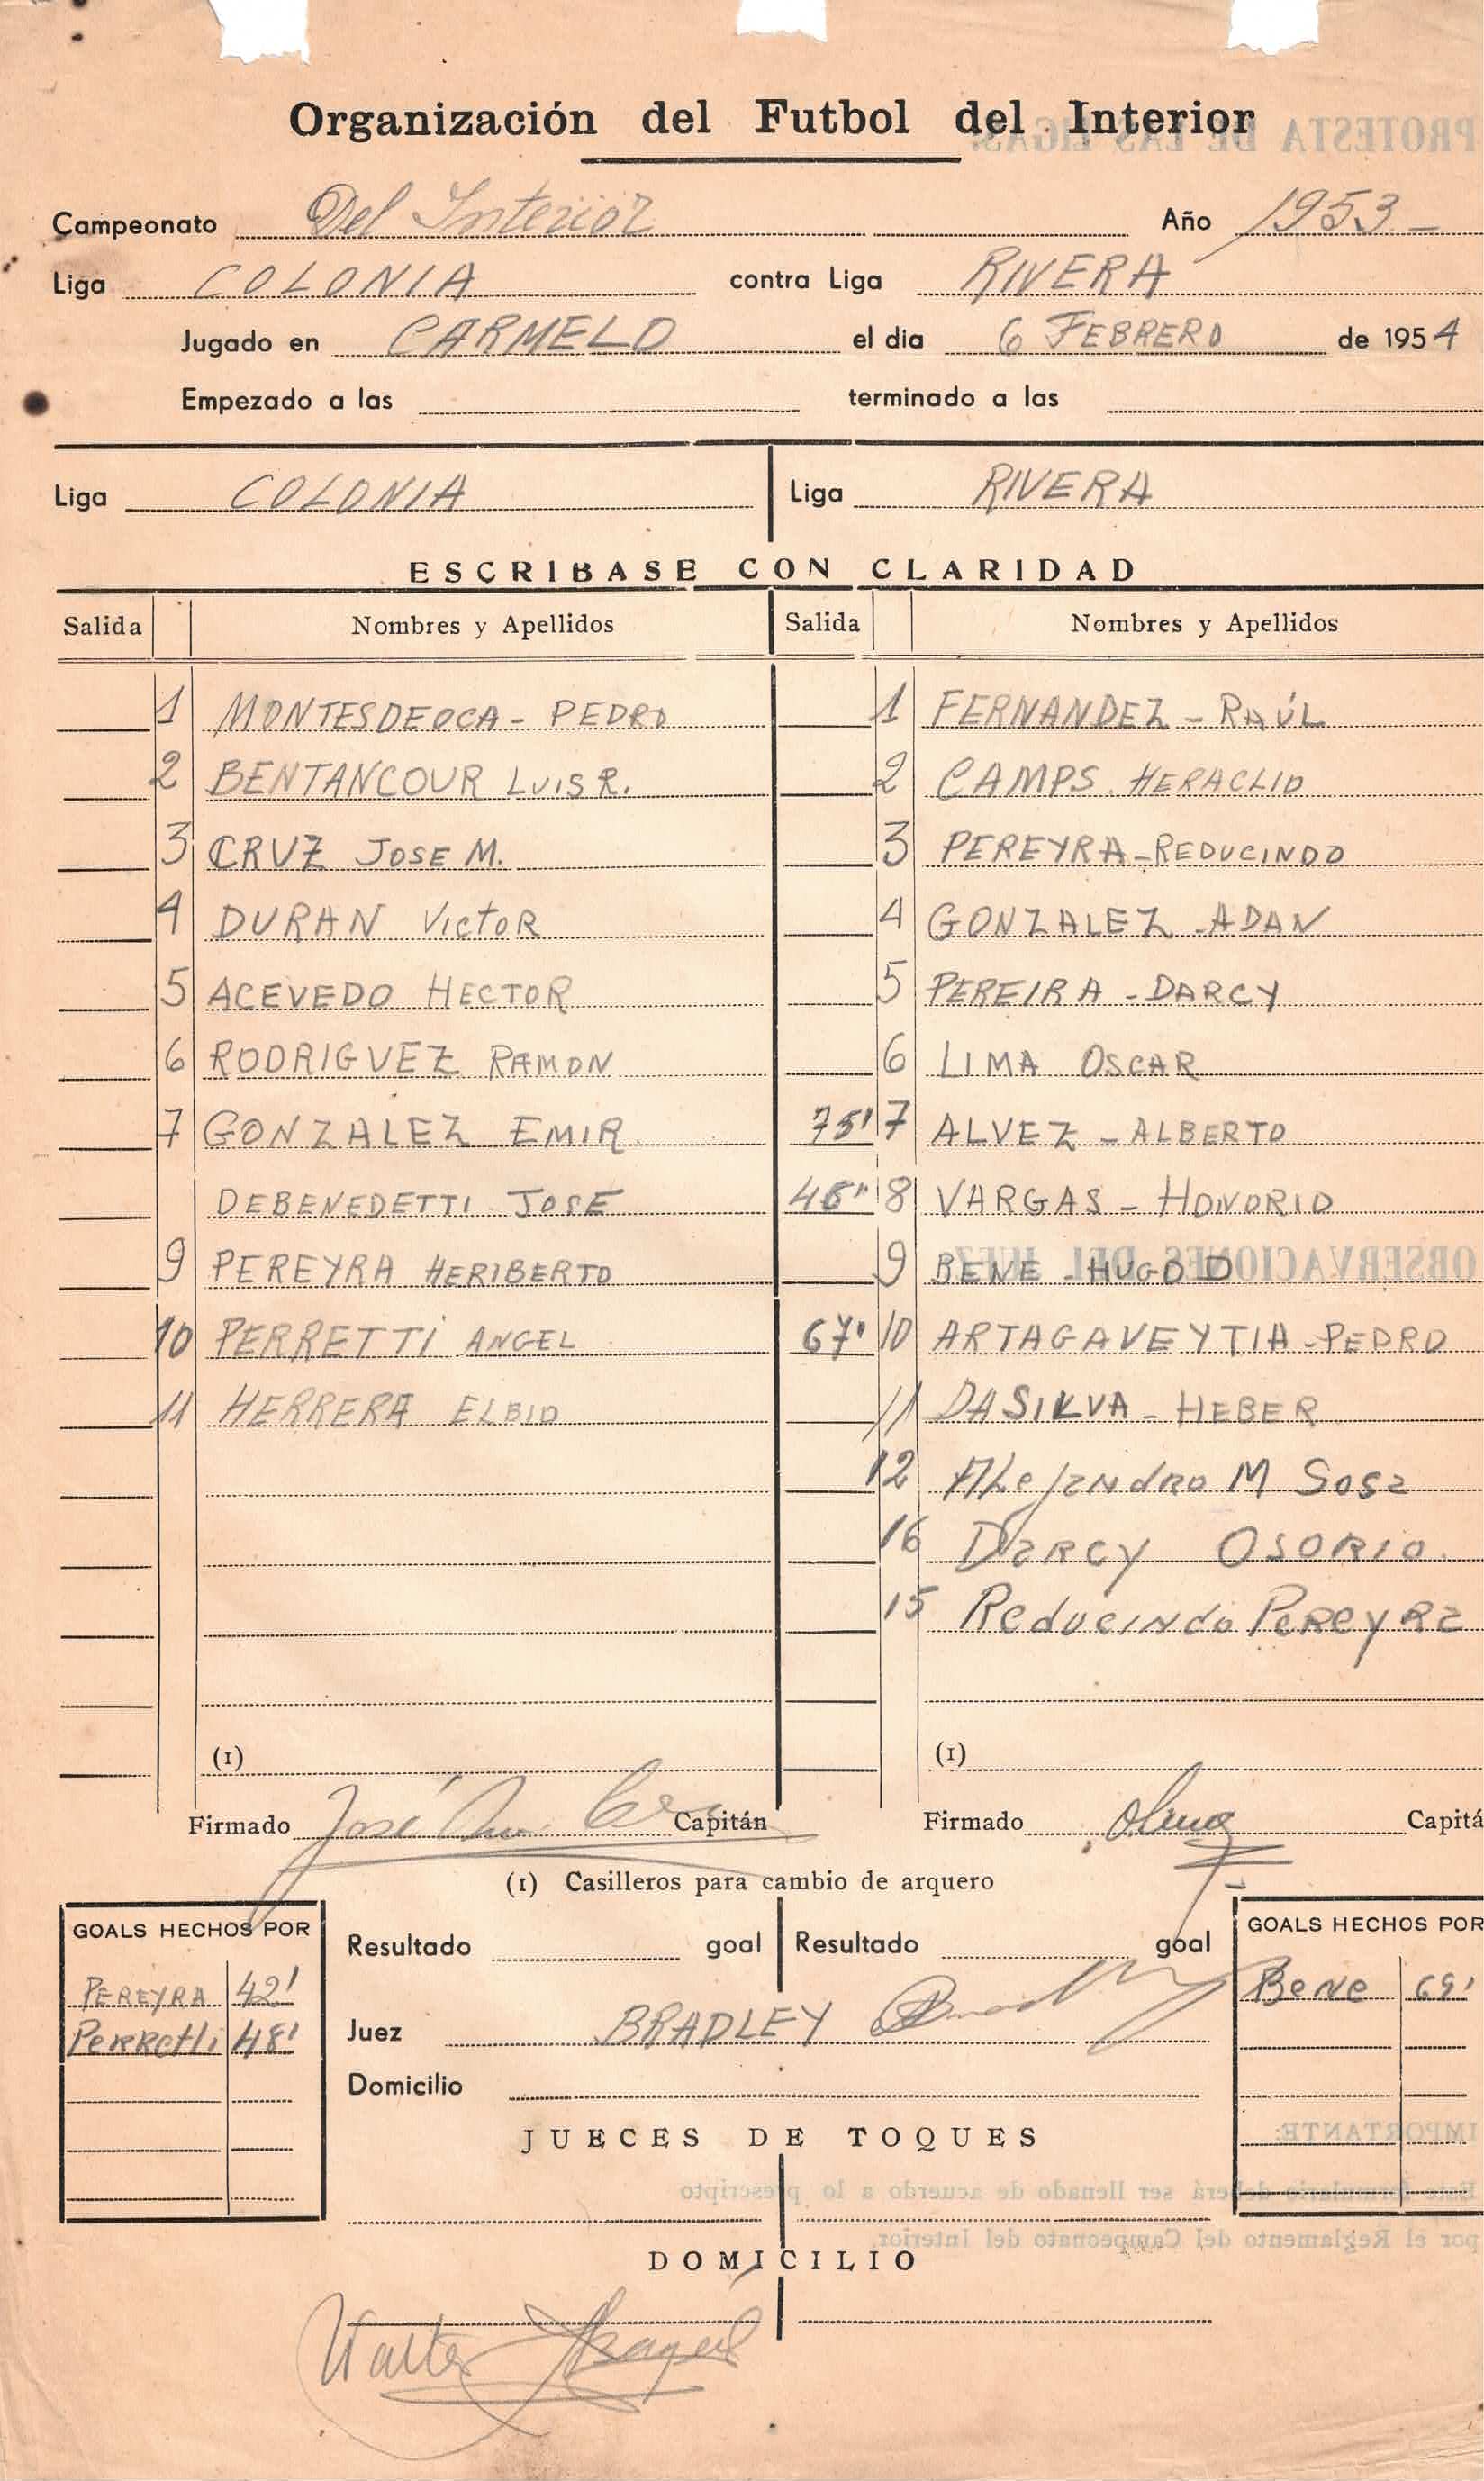 Organización del Futbol del Interior
PROTESTA DE LAS LIGAS.
Campeonato Del Interior Año 1953-
Liga COLONIA contra Liga RIVERA
Jugado en CARMELO el dia 6 FEBRERO de 1954
Empezado a las terminado a las
Liga COLONIA Liga RIVERA
ESCRIBASE CON CLARIDAD
Salida Nombres y Apellidos Salida Nombres y Apellidos
1 MONTESDEOCA - PEDRO 1 FERNANDEZ - RAÚL
2 BENTANCOUR LUIS R. 2 CAMPS. HERACLIO
3 CRUZ JOSE M. 3 PEREYRA - REDUCINDO
4 DURAN VictoR 4 GONZALEZ - ADAN
5 ACEVEDO HECTOR 5 PEREIRA - DARCY
6 RODRIGUEZ RAMON 6 LIMA OSCAR
7 GONZALEZ EMIR 75' 7 ALVEZ - ALBERTO
DEBENEDETTI JOSE 8 VARGAS - HONORIO
9 PEREYRA HERIBERTO 9 BENE - HUGO D
OBSERVACIONES DEL JUEZ
10 PERRETTi ANGEL 67' 10 ARTAGAVEYTIA - PEDRO
11 HERRERA ELBIO 11 DASILVA - HEBER
12 ALeJandro M Sosa
16 DaRCY OSORIO
15 ReducINdo PeReyRa
(1) (1)
Firmado José Capitán Firmado Capitá
(1) Casilleros para cambio de arquero
GOALS HECHOS POR Resultado goal Resultado goal GOALS HECHOS POR
PEREYRA 42' Bene 69'
PeRRetti 48' Juez BRADLEY
Domicilio
JUECES DE TOQUES
IMPORTANTE:
Este formulario deberá ser llenado de acuerdo a lo prescripto
por el Reglamento del Campeonato del Interior.
DOMICILIO
Walter